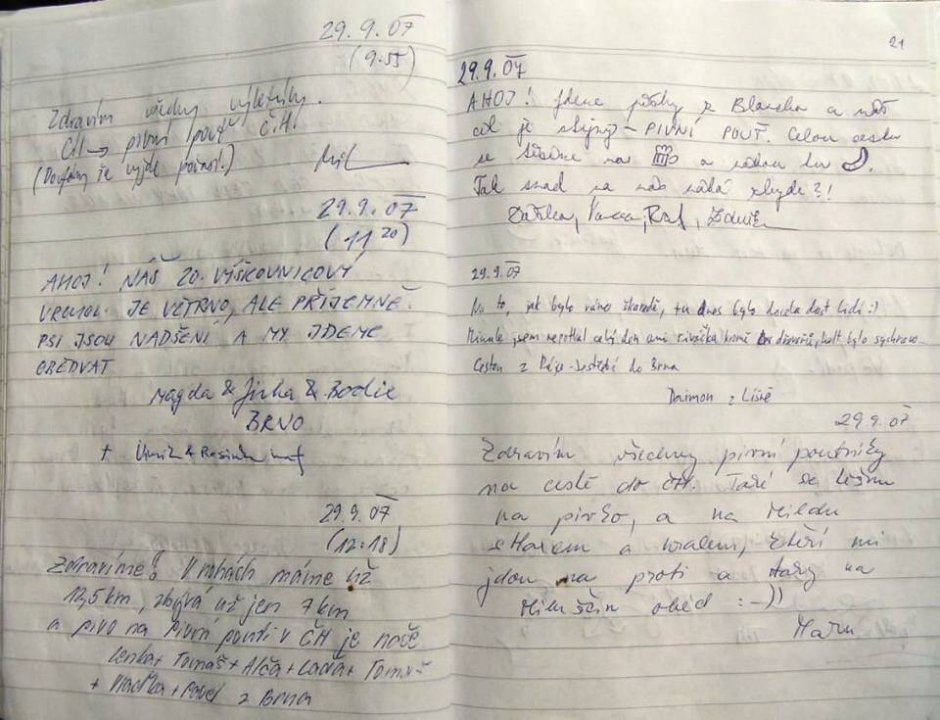 29.9.07
(9:55)
Zdravím všechny výletníky.
ČH → pivní pouť ČH.
(Doufám, že vyjde počasí!)
29.9.07
(11 20)
AHOJ! NÁŠ 20. VÝŠKOVNICOVÝ
VRCHOL. JE VĚTRNO, ALE PŘÍJEMNĚ.
PSI JSOU NADŠENÍ A MY JDEME
OBĚDVAT
Magda & Jirka & Bodie
BRNO
+
29.9.07
(12:18)
Zdravíme! V nohách máme už
12,5 km, zbývá už jen 7 km
a pivo na Pivní pouti v ČH je naše
Lenka + Tomáš + Alča + Láďa + Tomáš
+ Vlaďka + Pavel z Brna
21
29.9.07
AHOJ! Jdeme pěšky z Blanska a náš
cíl je stejný - PIVNÍ POUŤ. Celou cestu
se těšíme na a
Tak snad na nás zbyde?!
29.9.07
No to, jak bylo ráno škaredě, tu dnes bylo docela dost lidí :)
Minule jsem nepotkal celý den ani živáčka kromě holt bylo sychravo.
Cestou z Rájce-Jestřebí do Brna
Daimon z Líšně
29.9.07
Zdravím všechny pivní poutníky
na cestě do ČH. Také se těším
na pivko, a na Mildu
s a Kralem, kteří mi
jdou na proti a taky na
oběd :-))